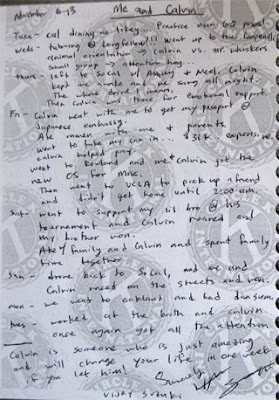 November 6-13 Me and Calvin
Tues - cal dining no likey... Practice our G2 powa!
Weds - tutoring @ Longfellow!!! Went up to the Campanile,
animal orientation - Calvin vs. mr. whiskers
small group → attention hog...
thurs - left to SoCal w/ Ashley & Noel, Calvin
kept me awake
The whole drive I mean.
Then Calvin was there for emotional support.
Fri - Calvin went with me to get my passport @
Japanese embassy.
Ate ramen with me & parents
Went to take my car in... $3k+ expenses,
Calvin helped pay
went to Rowland and me + Calvin got the
new OS for mac.
Then went to UCLA to pick up a friend
and didn't get home until 2:00 am.
Sat - went to support my lil bro @ his
tournament and Calvin roared and
my brother won.
Ate w/ family and Calvin and I spent family
time together.
Sun - drove back to SoCal, and me and
Calvin raced on the streets and won.
mon - we went to oakland and had dim sum.
tues - worked at the booth and calvin
once again got all the attention
Calvin is someone who is just amazing
and will change your life in one week
if you let him!
Sincerely,
Vijay Suzuki